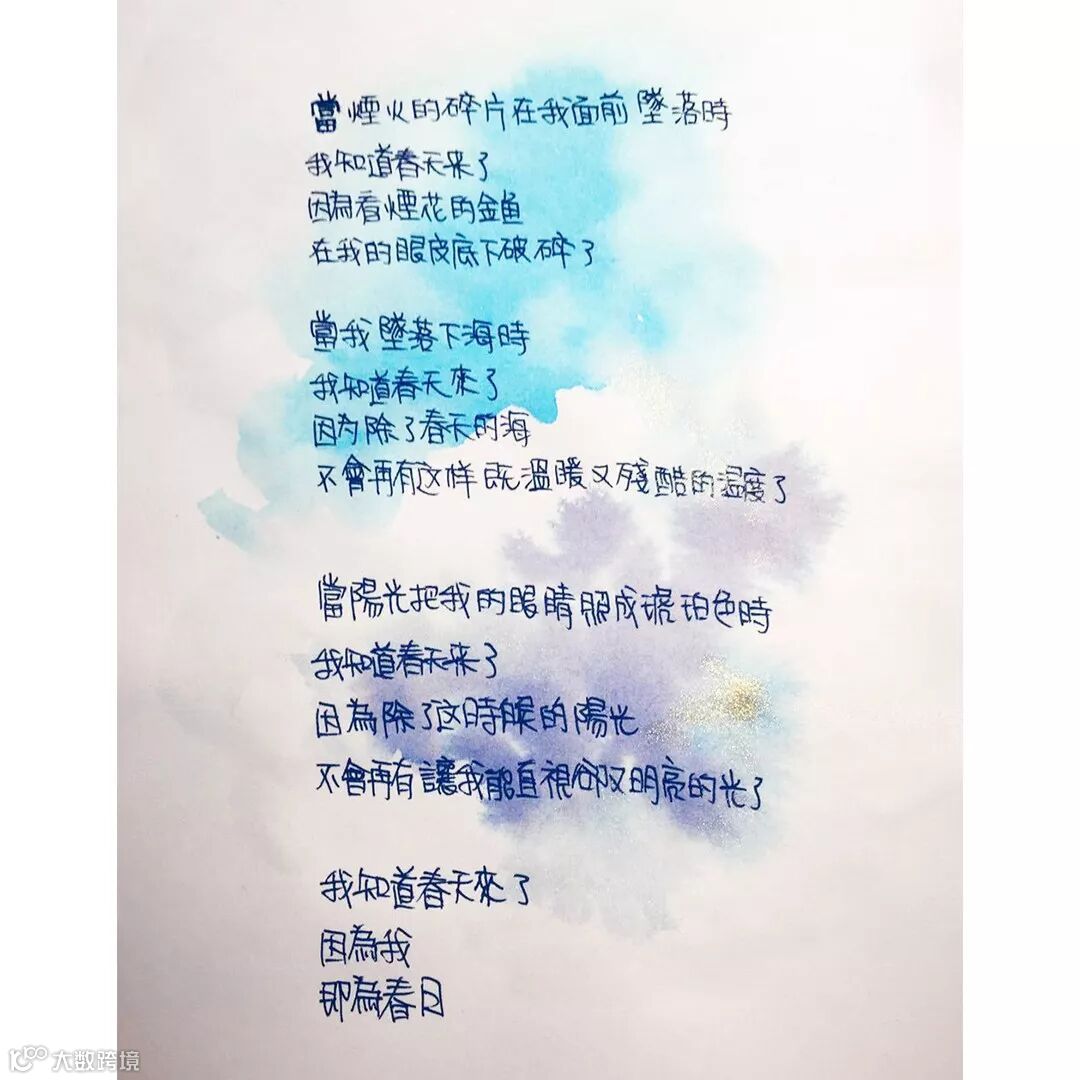 當煙火的碎片在我面前墜落時
我知道春天来了
因為看煙花的金魚
在我的眼皮底下破碎了
當我墜落下海時
我知道春天來了
因为除了春天的海
不會再有这样既溫暖又殘酷的温度了
當陽光把我的眼睛照成琥珀色時
我知道春天来了
因為除了这時候的陽光
不會再有讓我能直視卻又明亮的光了
我知道春天來了
因為我
即為春日
大数跨境